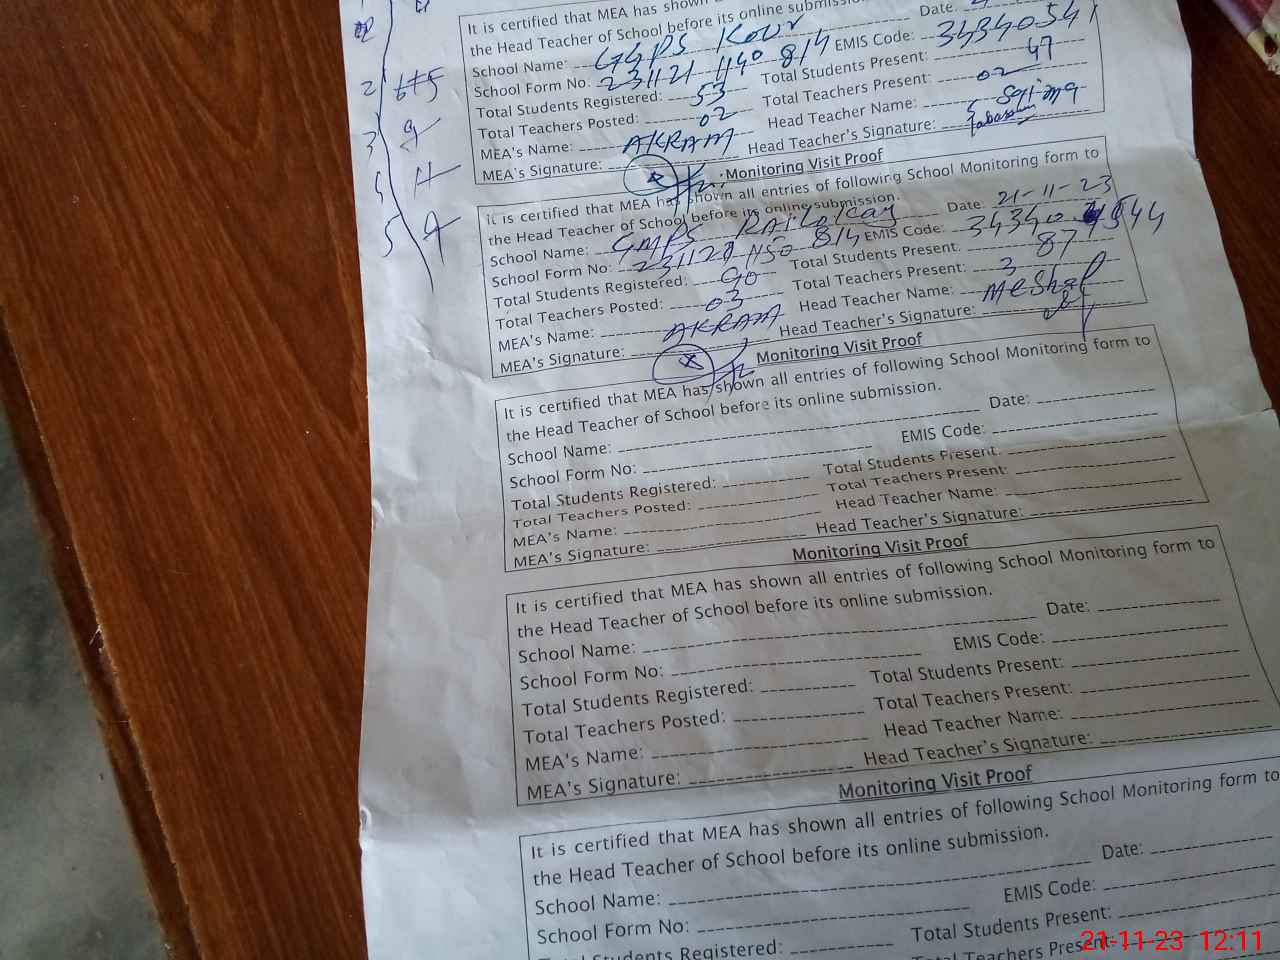 It is certified that MEA has shown
the Head Teacher of School before its online submission. Date:
School Name: GGPS Kour
School Form No: 231121 1140 814 EMIS Code: 34340541
Total Students Registered: 53 Total Students Present: 47
Total Teachers Posted: 02 Total Teachers Present: 02
MEA's Name: AKRAM Head Teacher Name: Saima
MEA's Signature: Head Teacher's Signature:
Monitoring Visit Proof
It is certified that MEA has shown all entries of following School Monitoring form to
the Head Teacher of School before its online submission.
School Name: GMPS Date: 21-11-23
School Form No: 231121 1150 814 EMIS Code:
Total Students Registered: 90 Total Students Present: 87
Total Teachers Posted: 03 Total Teachers Present: 3
MEA's Name: AKRAM Head Teacher Name:
MEA's Signature: Head Teacher's Signature:
Monitoring Visit Proof
It is certified that MEA has shown all entries of following School Monitoring form to
the Head Teacher of School before its online submission.
School Name: Date:
School Form No: EMIS Code:
Total Students Registered: Total Students Present:
Total Teachers Posted: Total Teachers Present:
MEA's Name: Head Teacher Name:
MEA's Signature: Head Teacher's Signature:
Monitoring Visit Proof
It is certified that MEA has shown all entries of following School Monitoring form to
the Head Teacher of School before its online submission.
School Name: Date:
School Form No: EMIS Code:
Total Students Registered: Total Students Present:
Total Teachers Posted: Total Teachers Present:
MEA's Name: Head Teacher Name:
MEA's Signature: Head Teacher's Signature:
Monitoring Visit Proof
It is certified that MEA has shown all entries of following School Monitoring form to
the Head Teacher of School before its online submission.
School Name: Date:
School Form No: EMIS Code:
Total Students Registered: Total Students Present:
Total Teachers Present:
21-11-23 12:11